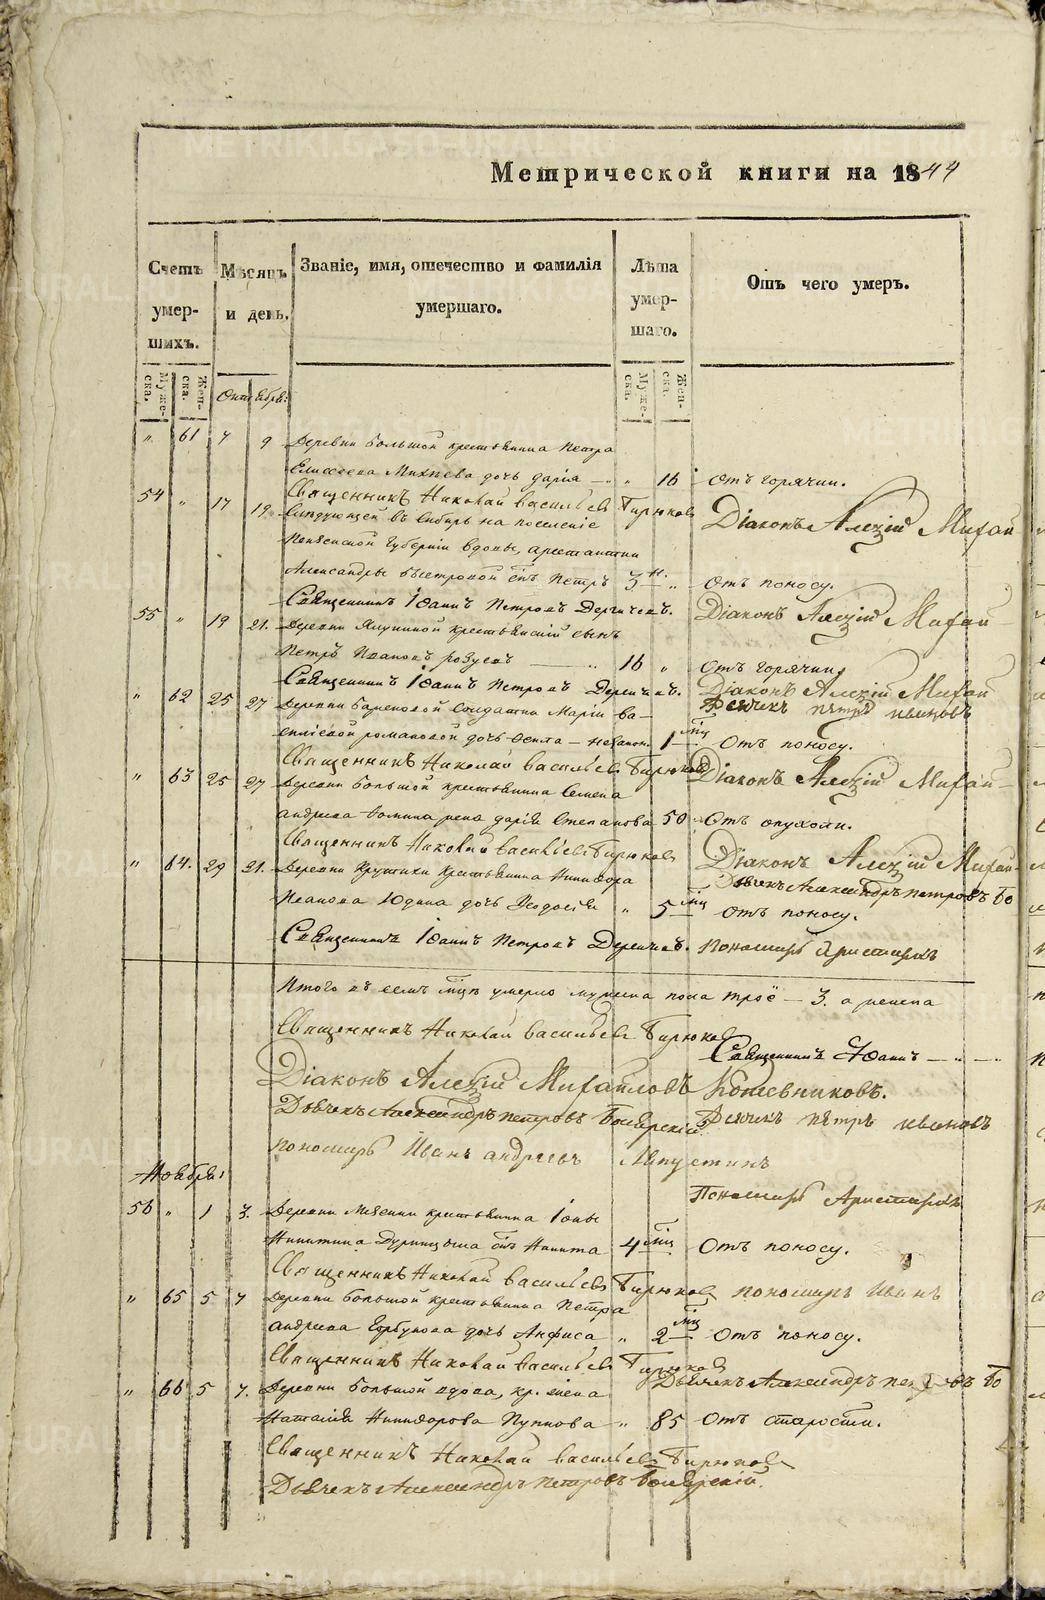 Метрической книги на 1844
Счетъ умер- шихъ.
Мѣсяцъ и день.
Званіе, имя, отечество и фамилія умершаго.
Лѣта умер- шаго.
Отъ чего умеръ.
Муже- ска. Жен- ска.
Муже- ска. Жен- ска.
Октября:
„ 61 7 9 Деревни Большой крестьянина Петра
Елисеева дочь Дарія — „ 16 отъ горячки.
Священникъ Николай Васильевъ Бирюковъ
54 „ 17 19 Слѣдующей въ Сибирь на поселеніе Діаконъ Алексій Михай
Пензенской губерніи вдовы, арестантки
Александры Быстровой сынъ Петръ 3 н. „ отъ поносу.
Священникъ Іоаннъ Петровъ Діаконъ Алексій Михай
55 „ 19 21. Деревни крестьянскій сынъ
Петръ Ивановъ — 16 „ отъ горячки
Священникъ Іоаннъ Петровъ Діаконъ Алексій Михай
„ 62 25 27 Деревни солдатки Маріи Ва- Дьячекъ Петръ Ивановъ
силіевой Романовой дочь — незакон. 1 мц отъ поносу.
Священникъ Николай Васильевъ Бирюковъ Діаконъ Алексій Михай
„ 63 25 27 Деревни Большой крестьянина Семена
Андреева жена Дарія Степанова 50 отъ опухоли.
Священникъ Николай Васильевъ Бирюковъ Діаконъ Алексій Михай
„ 64. 29 21. Деревни крестьянина Никифора Дьячекъ Александръ Петровъ Бо
Иванова Юдина дочь Ѳеодосія „ 5 мц отъ поносу.
Священникъ Іоаннъ Петровъ Пономарь Аристархъ
Итого въ семъ мцѣ умерло мужеска пола трое — 3. а женска
Священникъ Николай Васильевъ Бирюковъ
Священникъ Іоаннъ — „ —
Діаконъ Алексій Михайловъ Кожевниковъ.
Дьячекъ Александръ Петровъ Боярскій Дьячекъ Петръ Ивановъ
Пономарь Иванъ Андреевъ Августинъ
Пономарь Аристархъ
Ноября:
56 „ 1 3. Деревни крестьянина Іоны
Никитина сынъ Никита 4 мц отъ поносу.
Священникъ Николай Васильевъ Бирюковъ Пономарь Иванъ
„ 65 5 7 Деревни Большой крестьянина Петра
Андреева Горбунова дочь Анфиса „ 2 мц отъ поносу.
Священникъ Николай Васильевъ Бирюковъ
Дьячекъ Александръ Петровъ Бо
„ 66 5 7. Деревни Большой вдова, кр. жена
Наталія Никифорова „ 85 отъ старости.
Священникъ Николай Васильевъ Бирюковъ
Дьячекъ Александръ Петровъ Боярскій.